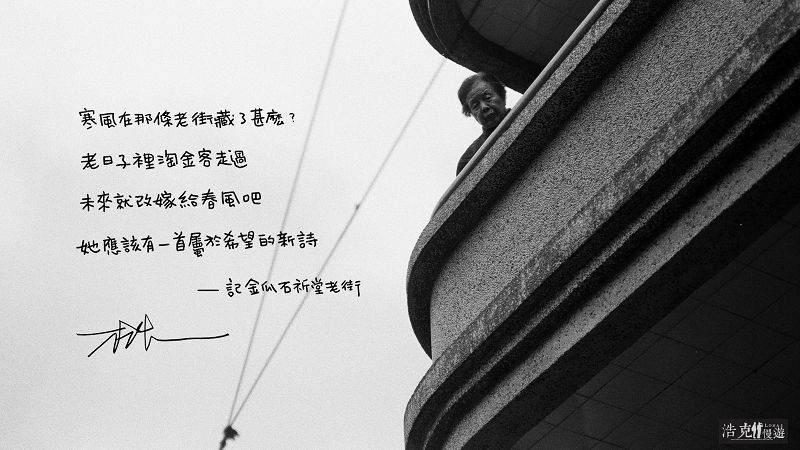 寒風在那條老街藏了甚麼？
老日子裡淘金客走過
未來就改嫁給春風吧
她應該有一首屬於希望的新詩
— 記金瓜石祈堂老街
浩克慢遊